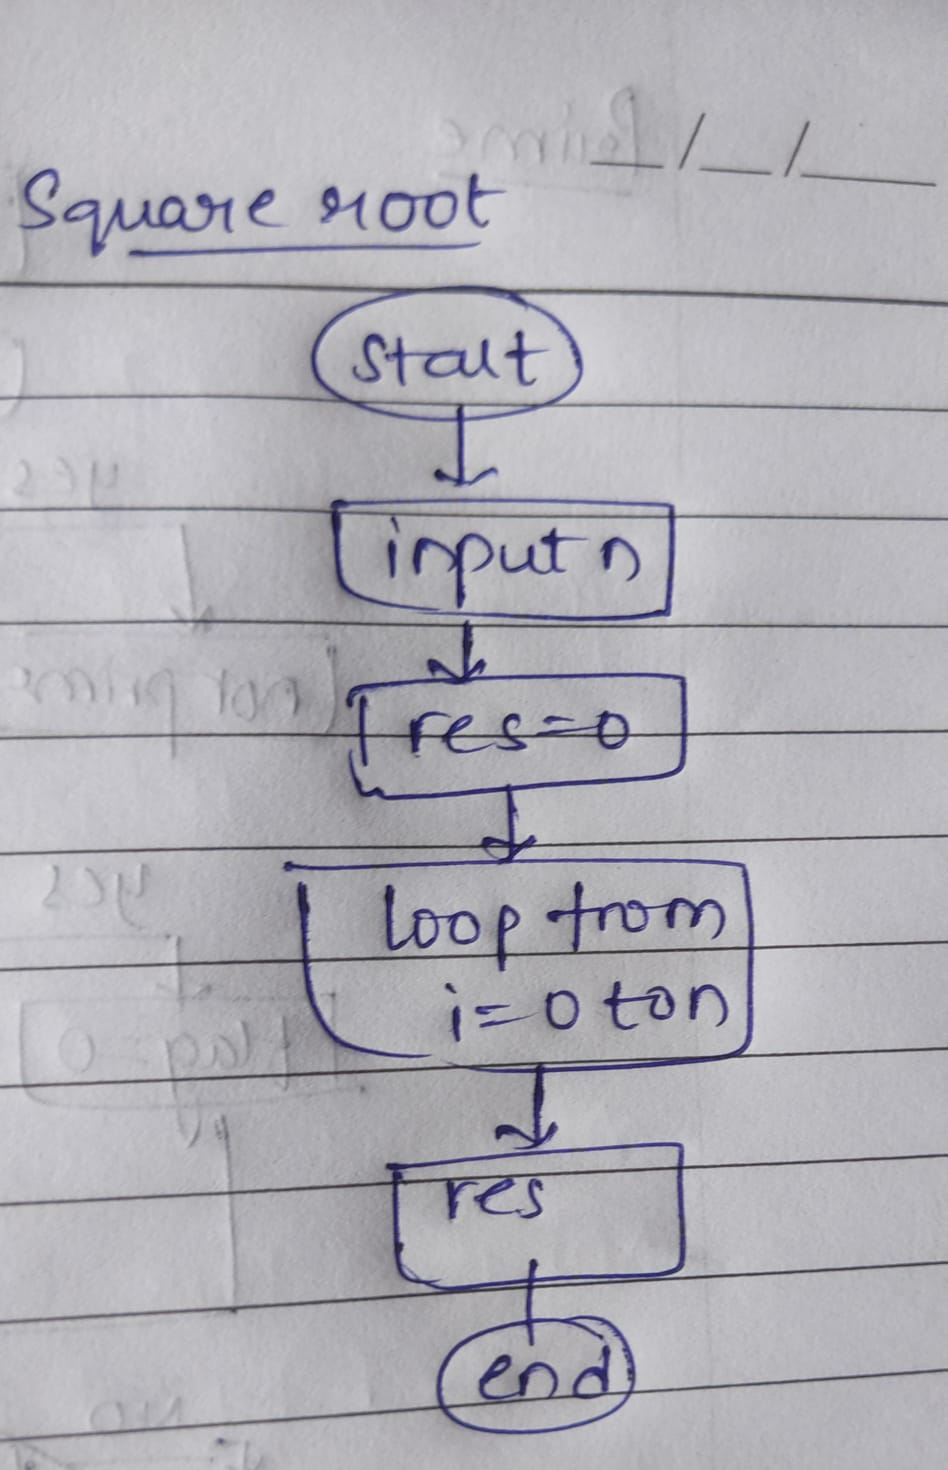 Square root
start
input n
res=0
loop from
i=0 to n
res
end